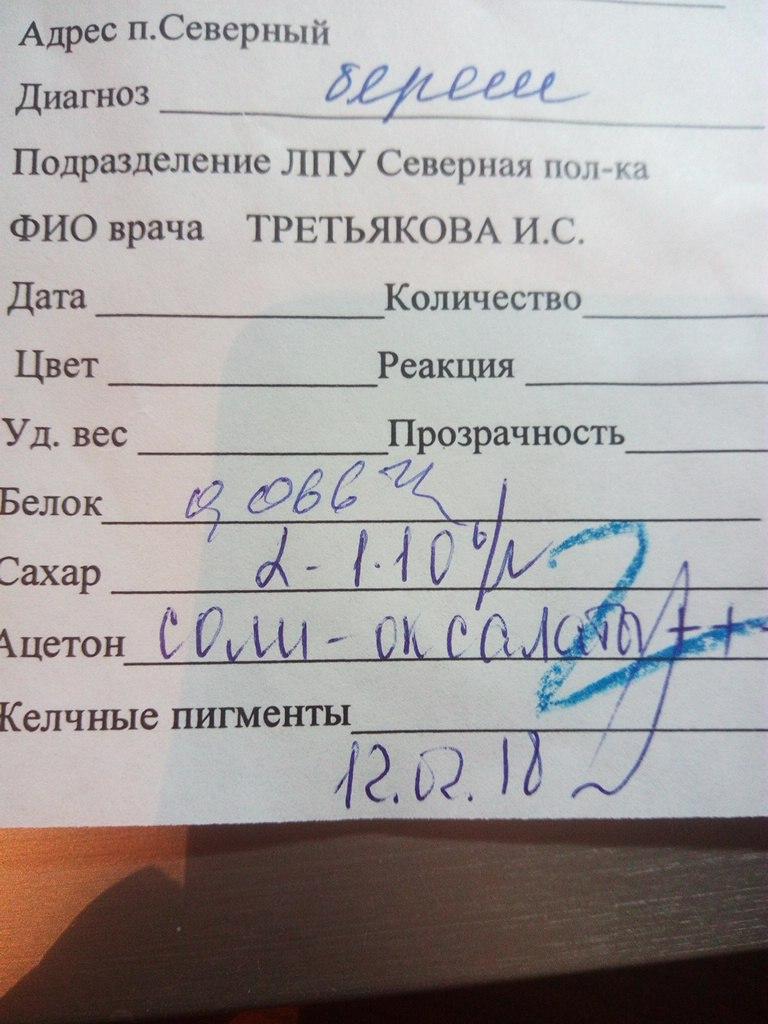 Адрес п.Северный
Диагноз берем
Подразделение ЛПУ Северная пол-ка
ФИО врача ТРЕТЬЯКОВА И.С.
Дата Количество
Цвет Реакция
Уд. вес Прозрачность
Белок 0,066
Сахар L-1.10
Ацетон соли-оксалаты ++
Желчные пигменты
12.02.18